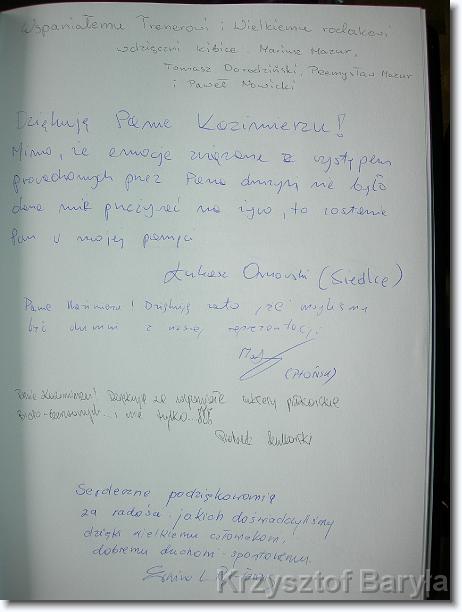 Wspaniałemu Trenerowi i Wielkiemu rodakowi
wdzięczni kibice. Mariusz Mazur,
Tomasz Dorodziński, Przemysław Mazur
i Paweł Nowicki
Dziękuję Panie Kazimierzu!
Mimo, że emocje związane z występem
prowadzonych przez Pana drużyn nie było
dane mnie przeżywać na żywo, to zostanie
Pan w mojej pamięci
Łukasz (Siedlce)
Panie Kazimierzu! Dziękuję za to, że mogliśmy
być dumni z naszej reprezentacji
(PŁOŃSK)
Panie Kazimierzu! Dziękuję za wspaniałe sukcesy piłkarskie
Biało-czerwonych... i nie tylko...
Serdeczne podziękowania
za radości jakich doświadczyliśmy
dzięki wielkiemu człowiekowi,
dobremu duchowi sportowemu.
Krzysztof Baryła